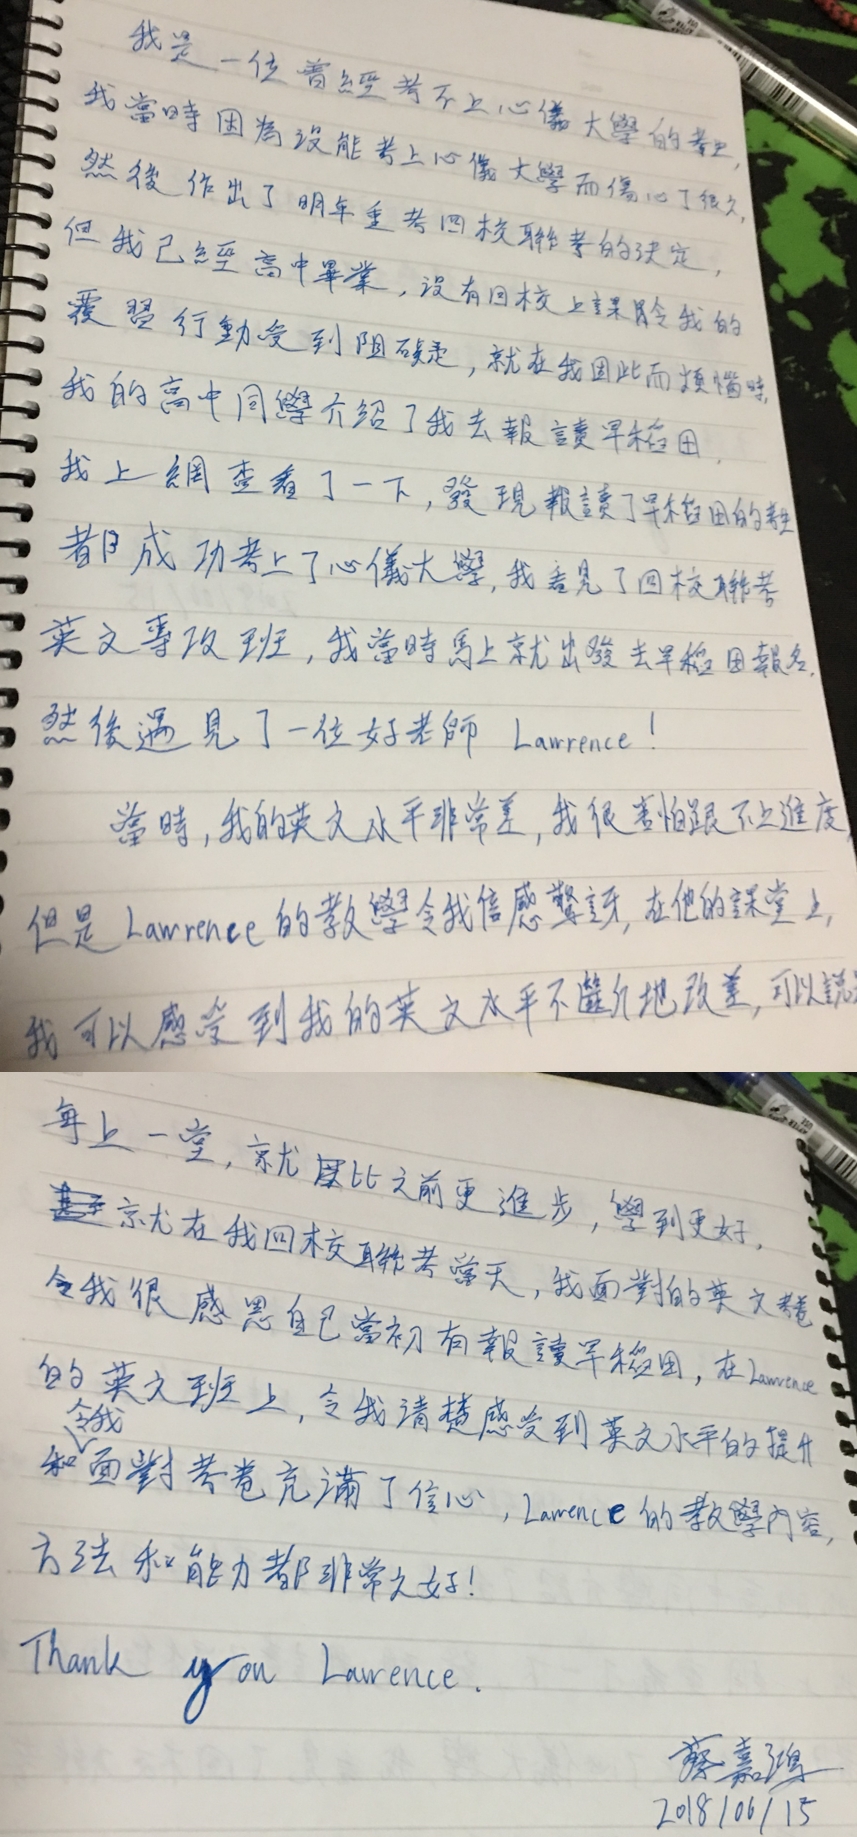 我是一位曾經考不上心儀大學的考生,
我當時因為沒能考上心儀大學而傷心了很久,
然後作出了明年重考四校聯考的決定,
但我已經高中畢業,沒有回校上課令我的
覆習行動受到阻礙,就在我因此而煩惱時,
我的高中同學介紹了我去報讀早稻田.
我上網查看了一下,發現報讀了早稻田的考生
都成功考上了心儀大學,我看見了四校聯考
英文專攻班,我當時馬上就出發去早稻田報名.
然後遇見了一位好老師 Lawrence!
當時,我的英文水平非常差,我很害怕跟不上進度,
但是 Lawrence 的教學令我倍感驚訝,在他的課堂上,
我可以感受到我的英文水平不斷地改善,可以說是
每上一堂,就比之前更進步,學到更好.
就在我四校聯考當天,我面對的英文考卷
令我很感恩自己當初有報讀早稻田,在Lawrence
的英文班上,令我清楚感受到英文水平的提升
和令我面對考卷充滿了信心,Lawrence 的教學內容,
方法和能力都非常之好!
Thank you Lawrence.
蔡嘉鴻
2018/06/15